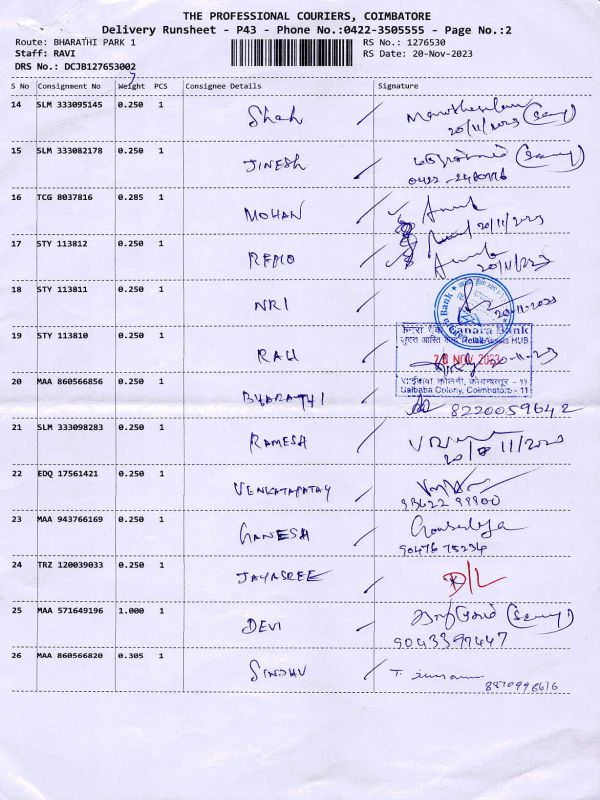 THE PROFESSIONAL COURIERS, COIMBATORE
Delivery Runsheet - P43 - Phone No.:0422-3505555 - Page No.:2
Route: BHARATHI PARK 1 RS No.: 1276530
Staff: RAVI RS Date: 20-Nov-2023
DRS No.: DCJB127653002
S No Consignment No Weight PCS Consignee Details Signature
14 SLM 333095145 0.250 1 Shah
20/11/2023
15 SLM 333082178 0.250 1 JINESH
0422-2480776
16 TCG 8037816 0.285 1 MOHAN
20/11/2023
17 STY 113812 0.250 1
20/11/2023
18 STY 113811 0.250 1 NRI 20-11-2023
Canara Bank
Retail Assets HUB
19 STY 113810 0.250 1 RAU 20 NOV 2023 20-11-2023
साईबाबा कोलनी, कोयम्बत्तूर - 11
Saibaba Colony, Coimbatore - 11
20 MAA 860566856 0.250 1 BHARATHI 8220059642
21 SLM 333098283 0.250 1 RAMESH
20/11/2023
22 EDQ 17561421 0.250 1 VENKATAPATAY
93622 99900
23 MAA 943766169 0.250 1 GANESH
90476 75234
24 TRZ 120039033 0.250 1 JAYASREE D/L
25 MAA 571649196 1.000 1 DEVI
9043399447
26 MAA 860566820 0.305 1 SINDHU
8870996616